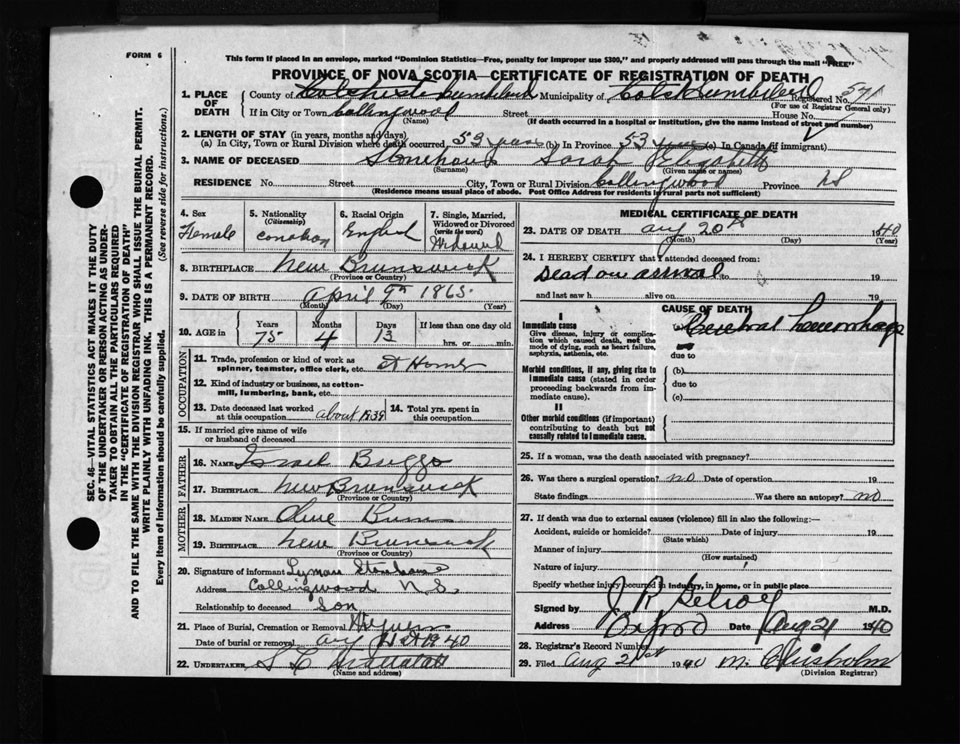 FORM 6
This form if placed in an envelope, marked "Dominion Statistics—Free, penalty for improper use $300," and properly addressed will pass through the mail "FREE"
PROVINCE OF NOVA SCOTIA—CERTIFICATE OF REGISTRATION OF DEATH
1. PLACE OF DEATH
County of Colchester Cumberland Municipality of Cumberland Registered No.
(For use of Registrar General only)
If in City or Town Collingwood Street House No.
(Name) (If death occurred in a hospital or institution, give the name instead of street and number)
2. LENGTH OF STAY (in years, months and days)
(a) In City, Town or Rural Division where death occurred 53 years (b) In Province 53 years (c) In Canada (if immigrant)
3. NAME OF DECEASED Stonehouse Sarah Elizabeth
(Surname) (Given name or names)
RESIDENCE No. Street City, Town or Rural Division Collingwood Province NS
(Residence means usual place of abode. Post Office Address for Residents in rural parts not sufficient)
4. Sex Female
5. Nationality (Citizenship) Canadian
6. Racial Origin English
7. Single, Married, Widowed or Divorced (write the word) Widowed
8. BIRTHPLACE New Brunswick
(Province or Country)
9. DATE OF BIRTH April 9th 1865
(Month) (Day) (Year)
10. AGE in Years 75 Months 4 Days 13 If less than one day old hrs. or min.
OCCUPATION
11. Trade, profession or kind of work as spinner, teamster, office clerk, etc. At Home
12. Kind of industry or business, as cotton-mill, lumbering, bank, etc.
13. Date deceased last worked at this occupation about 1939
14. Total yrs. spent in this occupation
15. If married give name of wife or husband of deceased
FATHER
16. Name Israel Briggs
17. Birthplace New Brunswick
(Province or Country)
MOTHER
18. Maiden Name Olive
19. Birthplace New Brunswick
(Province or Country)
20. Signature of informant Lyman Stonehouse
Address Collingwood N.S.
Relationship to deceased Son
21. Place of Burial, Cremation or Removal
Date of burial or removal Aug 1940
22. Undertaker
(Name and address)
MEDICAL CERTIFICATE OF DEATH
23. DATE OF DEATH Aug 20th 1940
(Month) (Day) (Year)
24. I HEREBY CERTIFY that I attended deceased from:
Dead on arrival to 19
and last saw h alive on 19
CAUSE OF DEATH
I
Immediate cause Cerebral hemorrhage
Give disease, injury or complication which caused death, not the mode of dying, such as heart failure, asphyxia, asthenia, etc.
due to
Morbid conditions, if any, giving rise to immediate cause (stated in order proceeding backwards from immediate cause).
(b)
due to
(c)
II
Other morbid conditions (if important) contributing to death but not causally related to immediate cause.
25. If a woman, was the death associated with pregnancy?
26. Was there a surgical operation? no Date of operation 19
State findings Was there an autopsy? no
27. If death was due to external causes (violence) fill in also the following:—
Accident, suicide or homicide? Date of injury 19
(State which)
Manner of injury
(How sustained)
Nature of injury
Specify whether injury occurred in industry, in home, or in public place
Signed by J R M.D.
Address Oxford Date Aug 21 1940
28. Registrar's Record Number
29. Filed Aug 21st 1940 M. Chisholm
(Division Registrar)
SEC. 46—VITAL STATISTICS ACT MAKES IT THE DUTY
OF THE UNDERTAKER OR PERSON ACTING AS UNDER-
TAKER TO OBTAIN ALL THE PARTICULARS REQUIRED
IN THE "CERTIFICATE OF REGISTRATION OF DEATH"
AND TO FILE THE SAME WITH THE DIVISION REGISTRAR WHO SHALL ISSUE THE BURIAL PERMIT.
WRITE PLAINLY WITH UNFADING INK. THIS IS A PERMANENT RECORD.
Every item of information should be carefully supplied. (See reverse side for instructions.)